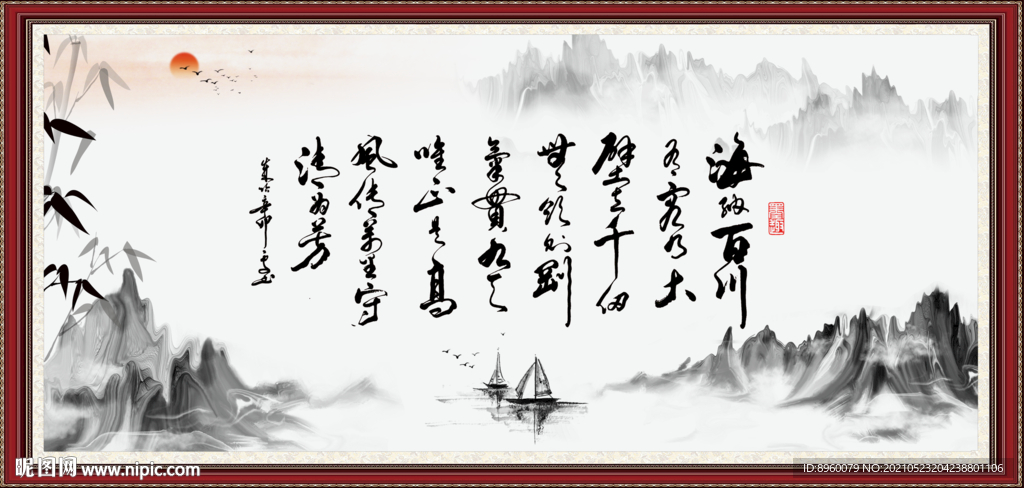 海納百川
有容乃大
壁立千仞
無欲则剛
氣貫九天
唯正是高
風传萬里守
清为芳
昵图网 www.nipic.com
ID:8960079 NO:20210523204238801106